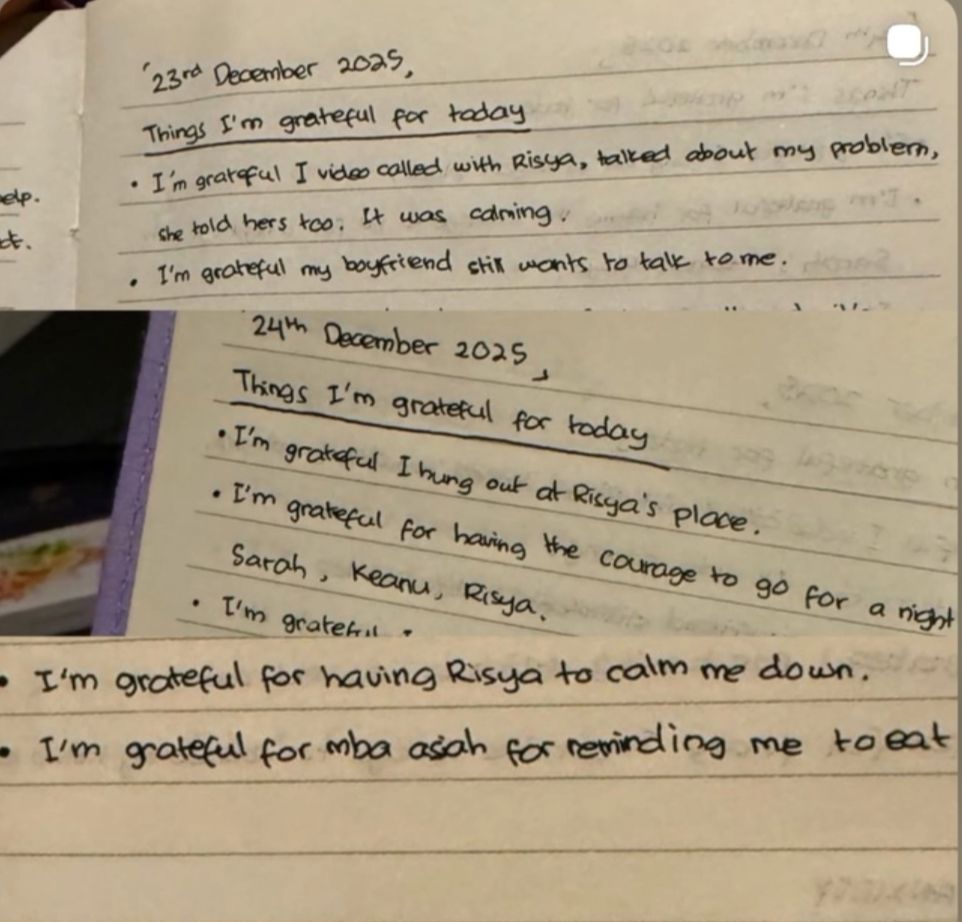 elp.
ct.
23rd December 2025,
Things I'm grateful for today
• I'm grateful I video called with Risya, talked about my problem,
she told hers too. It was calming.
• I'm grateful my boyfriend still wants to talk to me.
24th December 2025,
Things I'm grateful for today
• I'm grateful I hung out at Risya's place.
• I'm grateful for having the courage to go for a night
Sarah, Keanu, Risya.
• I'm grateful
• I'm grateful for having Risya to calm me down.
• I'm grateful for mba asiah for reminding me to eat